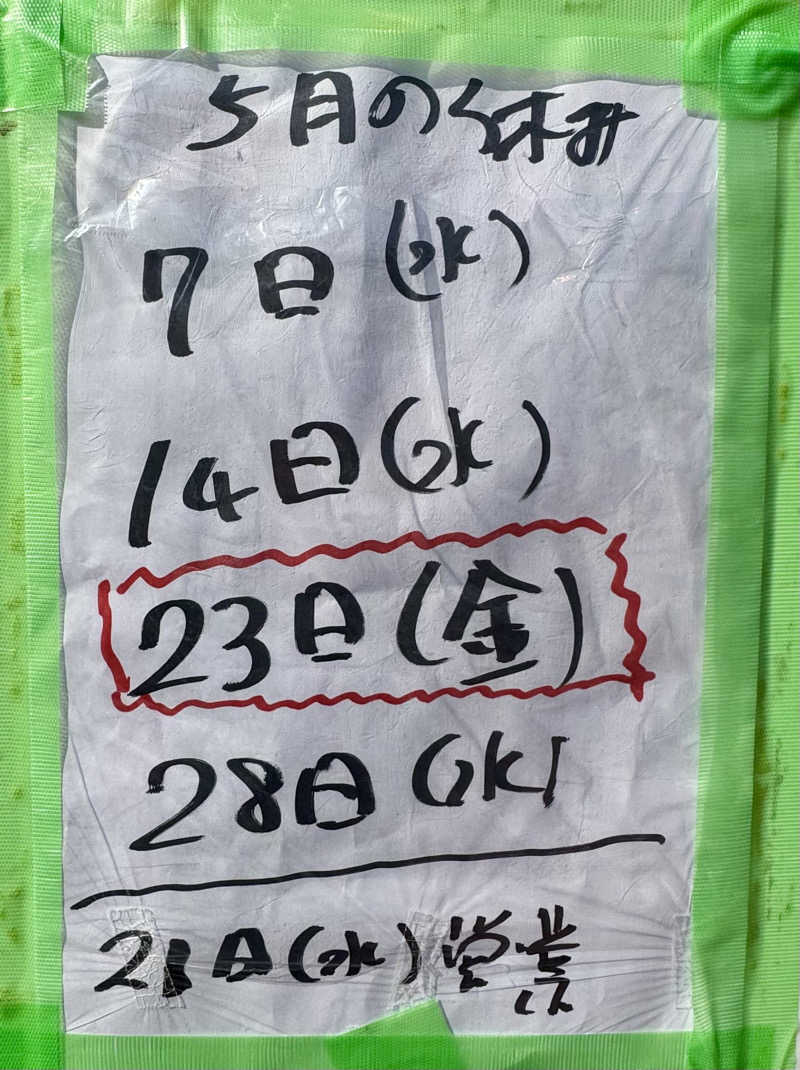 5月の休み
7日(水)
14日(水)
23日(金)
28日(水)
21日(水)営業